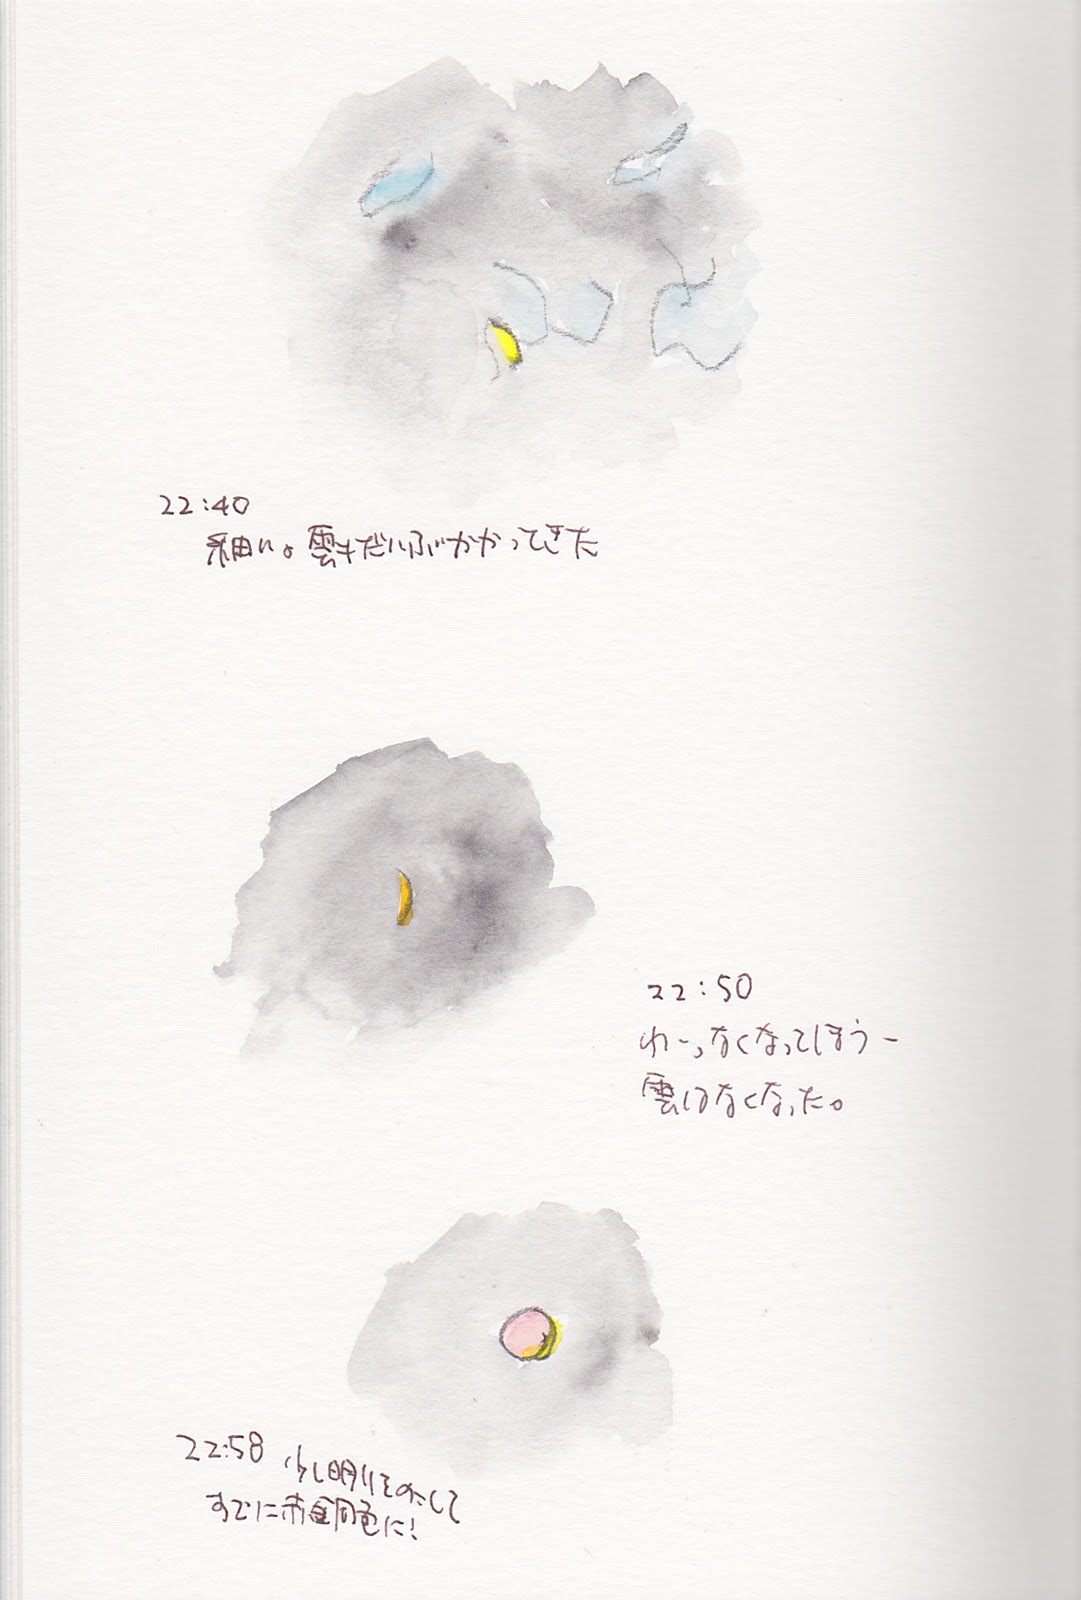 22:40
細い。雲もだいぶかかってきた
22:50
わーっなくなってしまうー
雲はなくなった。
22:58 少し明りをのこして
すでに赤銅色に!